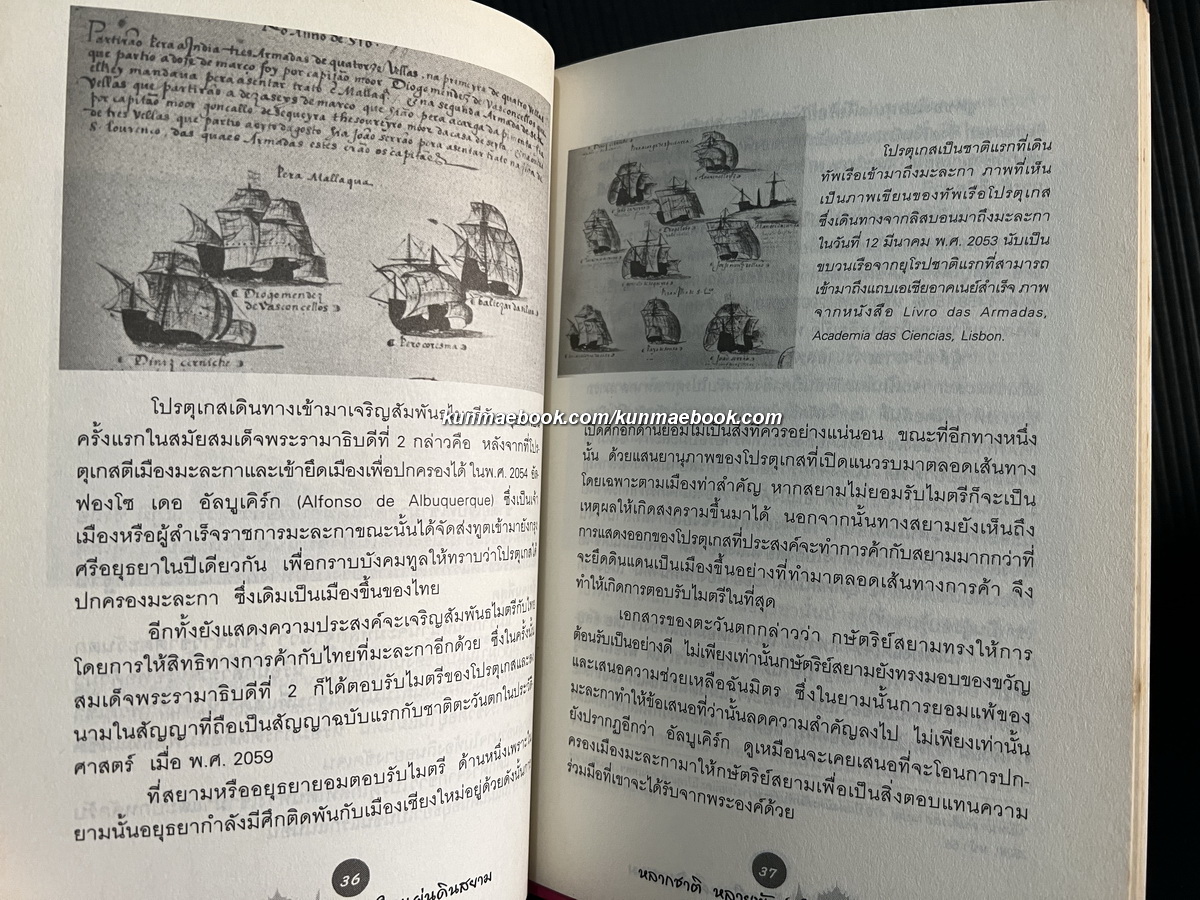 Anno de 510
Partirão pera a India tres Armadas de quatorze Vellas, na primeyra de quatro Vellas
que partio a doze de março foy por capitão moor Diogo mendez de Vasconcellos
elRey mandava pera asentar trato e Mallaq
Vellas que partirão a dezaseys de março que
por capitão moor goncallo de sequeyra thesoureyro moor da casa de
de tres vellas que partio a oyto dagosto, hia João serrão pera asentar trato na
S. Lourenço, das quaes Armadas estes erão os capitães
Pera Mallaqua
Diogo mendez
de Vasconcellos
baltezar da silva
Pero coresma
Diniz cerniche
โปรตุเกสเดินทางเข้ามาเจริญสัมพันธไมตรี
ครั้งแรกในสมัยสมเด็จพระรามาธิบดีที่ 2 กล่าวคือ หลังจากที่โปร-
ตุเกสตีเมืองมะละกาและเข้ายึดเมืองเพื่อปกครองได้ ในพ.ศ. 2054 อัล-
ฟองโซ เดอ อัลบูเคิร์ก (Alfonso de Albuquerque) ซึ่งเป็นเจ้า
เมืองหรือผู้สำเร็จราชการมะละกาขณะนั้นได้จัดส่งทูตเข้ามายังกรุง
ศรีอยุธยาในปีเดียวกัน เพื่อกราบบังคมทูลให้ทราบว่าโปรตุเกสได้
ปกครองมะละกา ซึ่งเดิมเป็นเมืองขึ้นของไทย
อีกทั้งยังแสดงความประสงค์จะเจริญสัมพันธไมตรีกับไทย
โดยการให้สิทธิทางการค้ากับไทยที่มะละกาอีกด้วย ซึ่งในครั้งนั้น
สมเด็จพระรามาธิบดีที่ 2 ก็ได้ตอบรับไมตรีของโปรตุเกสและลง
นามในสัญญาที่ถือเป็นสัญญาฉบับแรกกับชาติตะวันตกในประวัติ-
ศาสตร์ เมื่อ พ.ศ. 2059
ที่สยามหรืออยุธยายอมตอบรับไมตรี ด้านหนึ่งเพราะใน
ยามนั้นอยุธยากำลังมีศึกติดพันกับเมืองเชียงใหม่อยู่ด้วยดังนั้นการ
36
แผ่นดินสยาม
kunmaebook.com/kunmaebook.com
โปรตุเกสเป็นชาติแรกที่เดิน
ทัพเรือเข้ามาถึงมะละกา ภาพที่เห็น
เป็นภาพเขียนของทัพเรือโปรตุเกส
ซึ่งเดินทางจากลิสบอนมาถึงมะละกา
ในวันที่ 12 มีนาคม พ.ศ. 2053 นับเป็น
ขบวนเรือจากยุโรปชาติแรกที่สามารถ
เข้ามาถึงแถบเอเชียอาคเนย์สำเร็จ ภาพ
จากหนังสือ Livro das Armadas,
Academia das Ciencias, Lisbon.
เปิดศึกอีกด้านย่อมไม่เป็นสิ่งที่ควรอย่างแน่นอน ขณะที่อีกทางหนึ่ง
นั้น ด้วยแสนยานุภาพของโปรตุเกสที่เปิดแนวรบมาตลอดเส้นทาง
โดยเฉพาะตามเมืองท่าสำคัญ หากสยามไม่ยอมรับไมตรีก็จะเป็น
เหตุผลให้เกิดสงครามขึ้นมาได้ นอกจากนั้นทางสยามยังเห็นถึง
การแสดงออกของโปรตุเกสที่ประสงค์จะทำการค้ากับสยามมากกว่าที่
จะยึดดินแดนเป็นเมืองขึ้นอย่างที่ทำมาตลอดเส้นทางการค้า จึง
ทำให้เกิดการตอบรับไมตรีในที่สุด
เอกสารของตะวันตกกล่าวว่า กษัตริย์สยามทรงให้การ
ต้อนรับเป็นอย่างดี ไม่เพียงเท่านั้นกษัตริย์สยามยังทรงมอบของขวัญ
และเสนอความช่วยเหลือฉันมิตร ซึ่งในยามนั้นการยอมแพ้ของ
มะละกาทำให้ข้อเสนอที่ว่านั้นลดความสำคัญลงไป ไม่เพียงเท่านั้น
ยังปรากฏอีกว่า อัลบูเคิร์ก ดูเหมือนจะเคยเสนอที่จะโอนการปก-
ครองเมืองมะละกามาให้กษัตริย์สยามเพื่อเป็นสิ่งตอบแทนความ
ร่วมมือที่เขาจะได้รับจากพระองค์ด้วย
37
หลากชาติ หลายพันธุ์